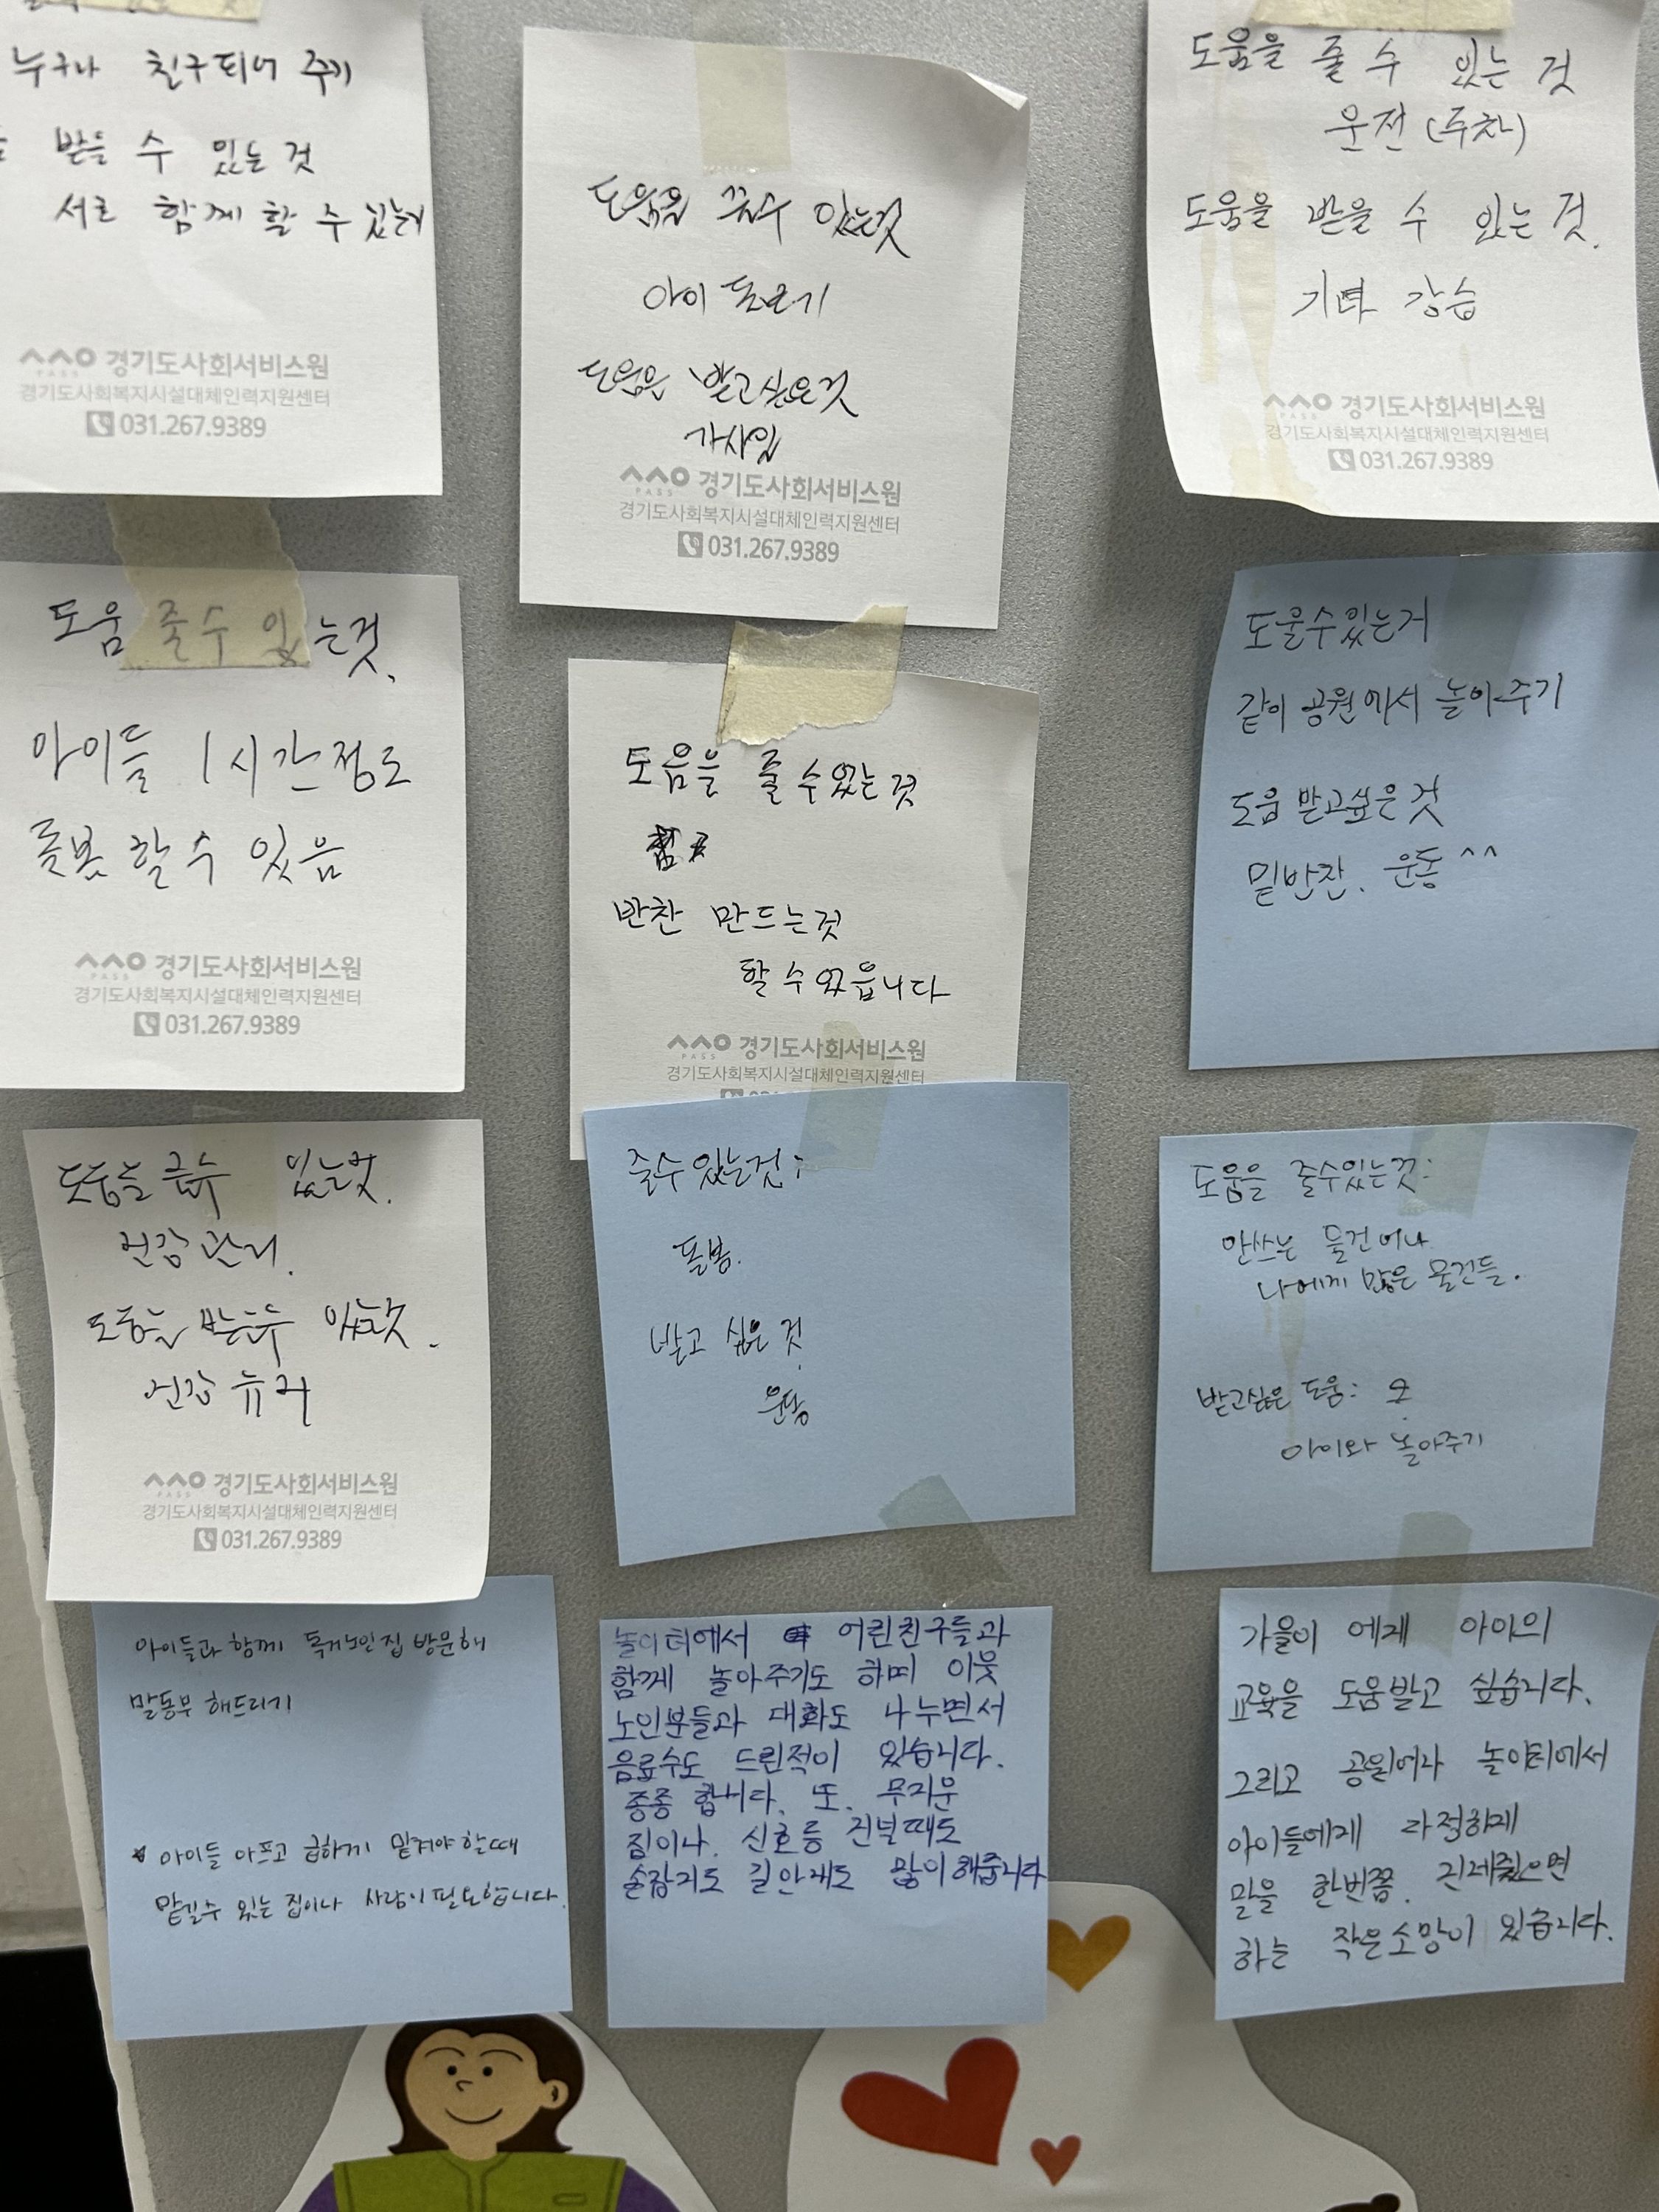 누구나 친구되어 주기
받을 수 있는 것
서로 함께 할 수 있는
경기도사회서비스원
경기도사회복지시설대체인력지원센터
031.267.9389
도움을 줄수 있는것
아이 돌보기
도움을 받고싶은것
가사일
PASS 경기도사회서비스원
경기도사회복지시설대체인력지원센터
031.267.9389
도움을 줄 수 있는 것
운전 (주차)
도움을 받을 수 있는 것.
기타 강습
경기도사회서비스원
경기도사회복지시설대체인력지원센터
031.267.9389
도움 줄수 있는것.
아이들 1시간정도
돌봄 할 수 있음
PASS 경기도사회서비스원
경기도사회복지시설대체인력지원센터
031.267.9389
도움을 줄 수 있는 것
반찬 만드는것
할 수 있읍니다
PASS 경기도사회서비스원
경기도사회복지시설대체인력지원센터
도울수있는거
같이 공원에서 놀아주기
도움 받고싶은 것
밑반찬. 운동 ^^
도움을 줄수 있는것.
건강관리.
도움을 받을수 있는것.
건강
PASS 경기도사회서비스원
경기도사회복지시설대체인력지원센터
031.267.9389
줄수 있는것:
돌봄.
받고 싶은 것.
운동
도움을 줄수있는것:
안쓰는 물건이나
나에게 많은 물건들.
받고싶은 도움:
아이와 놀아주기
아이들과 함께 독거노인집 방문해
말동무 해드리기
아이들 아프고 급하게 맡겨야 할때
맡길수 있는 집이나 사람이 필요합니다.
놀이터에서 어린친구들과
함께 놀아주기도 하며 이웃
노인분들과 대화도 나누면서
음료수도 드린적이 있습니다.
종종 합니다. 또. 무거운
짐이나. 신호등 건널때도
손잡기도 길안내도 많이해줍니다
가을이 에게 아이의
교육을 도움받고 싶습니다.
그리고 공원이나 놀이터에서
아이들에게 다정하게
말을 한번쯤. 건네줬으면
하는 작은소망이 있습니다.